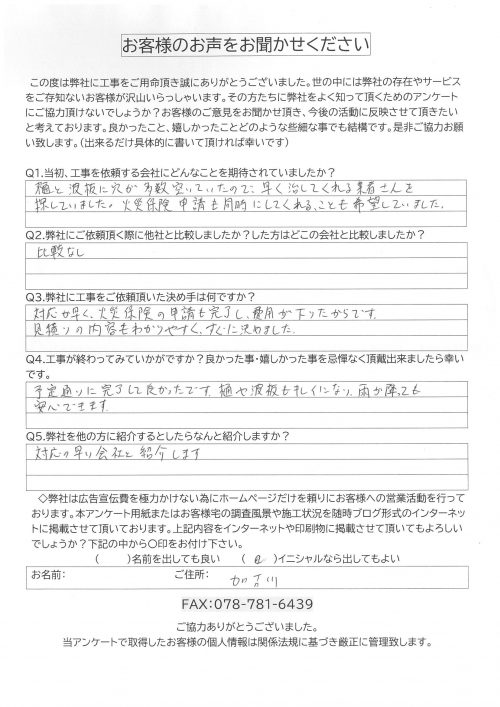 お客様のお声をお聞かせください
この度は弊社に工事をご用命頂き誠にありがとうございました。世の中には弊社の存在やサービス
をご存知ないお客様が沢山いらっしゃいます。その方たちに弊社をよく知って頂くためのアンケート
にご協力頂けないでしょうか？お客様のご意見をお聞かせ頂き、今後の活動に反映させて頂きたい
と考えております。良かったこと、嬉しかったことどのような些細な事でも結構です。是非ご協力お願
い致します。（出来るだけ具体的に書いて頂ければ幸いです）
Q1.当初、工事を依頼する会社にどんなことを期待されていましたか？
樋と波板に穴が多数空いていたので、早く治してくれる業者さんを
探していました。火災保険申請も同時にしてくれることも希望していました。
Q2.弊社にご依頼頂く際に他社と比較しましたか？した方はどこの会社と比較しましたか？
比較なし
Q3.弊社に工事をご依頼頂いた決め手は何ですか？
対応が早く、火災保険の申請も完了し、費用が下りたからです。
見積りの内容もわかりやすく、すぐに決めました。
Q4.工事が終わってみていかがですか？良かった事・嬉しかった事を忌憚なく頂戴出来ましたら幸い
です。
予定通りに完了して良かったです。樋や波板もキレイになり、雨が降っても
安心できます。
Q5.弊社を他の方に紹介するとしたらなんと紹介しますか？
対応の早い会社と紹介します
◇弊社は広告宣伝費を極力かけない為にホームページだけを頼りにお客様への営業活動を行って
おります。本アンケート用紙またはお客様宅の調査風景や施工状況を随時ブログ形式のインターネッ
トに掲載させて頂いております。上記内容をインターネットや印刷物に掲載させて頂いてもよろしい
でしょうか？下記の中から〇印をお付け下さい。
（　　）名前を出しても良い　（　　）イニシャルなら出してもよい
お名前:　ご住所:　加古川
FAX:078-781-6439
ご協力ありがとうございました。
当アンケートで取得したお客様の個人情報は関係法規に基づき厳正に管理致します。